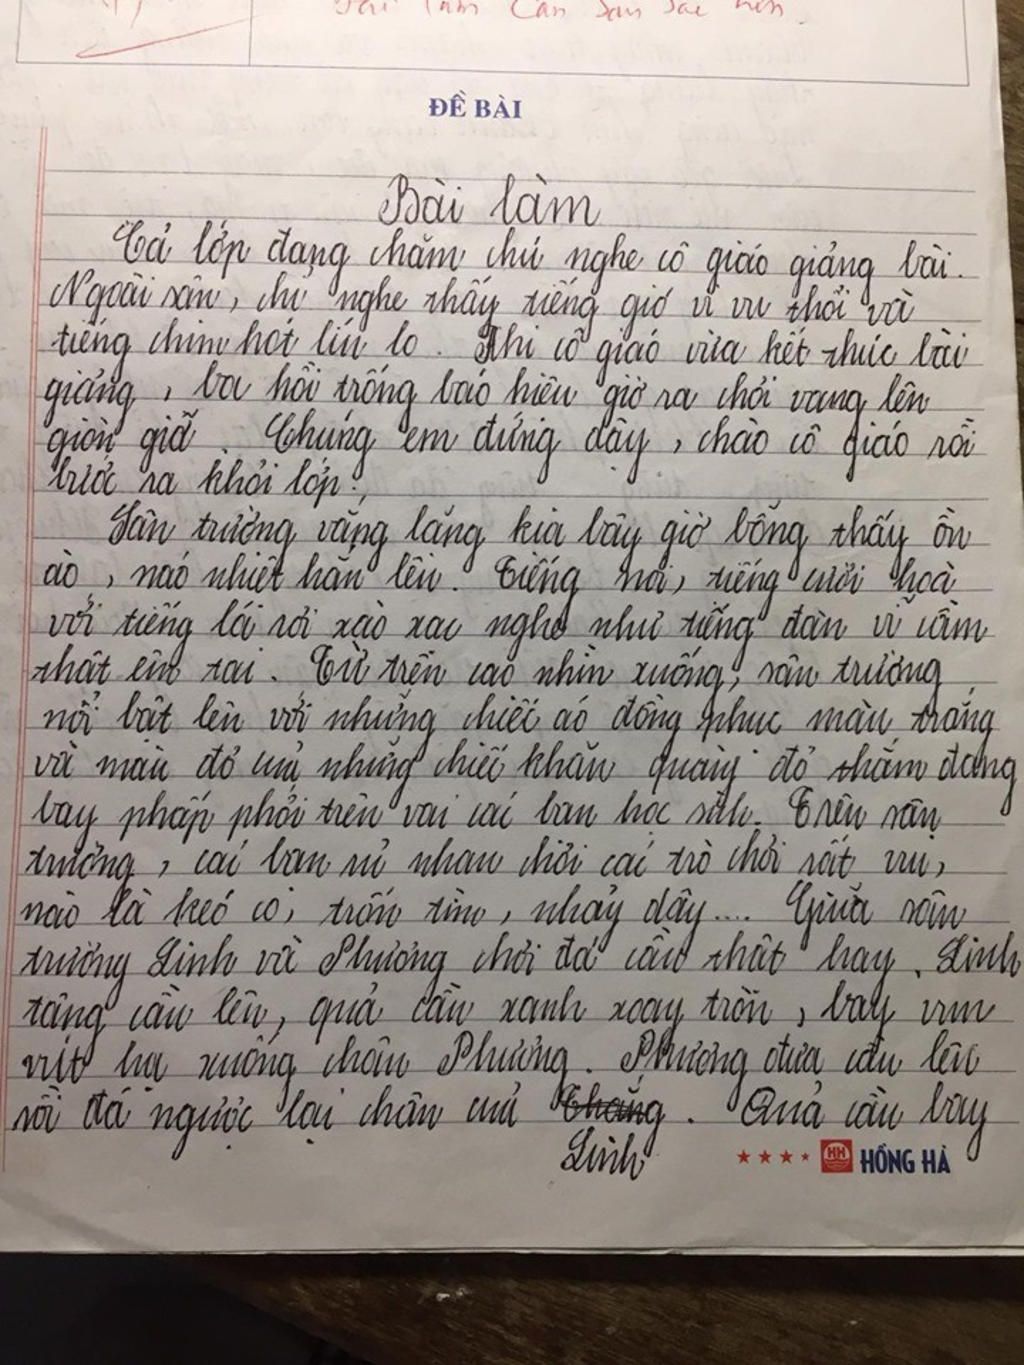 Bài làm cần sâu sắc hơn.
ĐỀ BÀI
Bài làm
Cả lớp đang chăm chú nghe cô giáo giảng bài.
Ngoài sân, chỉ nghe thấy tiếng gió vi vu thổi và
tiếng chim hót líu lo. Khi cô giáo vừa kết thúc bài
giảng, ba hồi trống báo hiệu giờ ra chơi vang lên
giòn giã. Chúng em đứng dậy, chào cô giáo rồi
bước ra khỏi lớp.
Sân trường vắng lặng kia bây giờ bỗng thấy ồn
ào, náo nhiệt hẳn lên. Tiếng nói, tiếng cười hoà
với tiếng lá rơi xào xạc nghe như tiếng đàn vĩ cầm
thật êm tai. Từ trên cao nhìn xuống, sân trường
nổi bật lên với những chiếc áo đồng phục màu trắng
và màu đỏ của những chiếc khăn quàng đỏ thắm đang
bay phấp phới trên vai các bạn học sinh. Trên sân
trường, các bạn rủ nhau chơi các trò chơi rất vui,
nào là kéo co, trốn tìm, nhảy dây.... Giữa sân
trường Linh và Phương chơi đá cầu thật hay. Linh
tâng cầu lên, quả cầu xanh xoay tròn, bay vun
vút hạ xuống chân Phương. Phương đưa cầu lên
rồi đá ngược lại chân của Thắng. Quả cầu bay
Linh
HH HỒNG HÀ